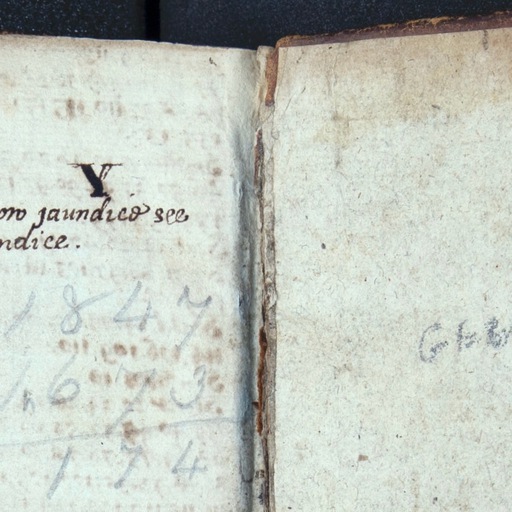 Y
ow jaundice see
ndice.
1847
1673
174